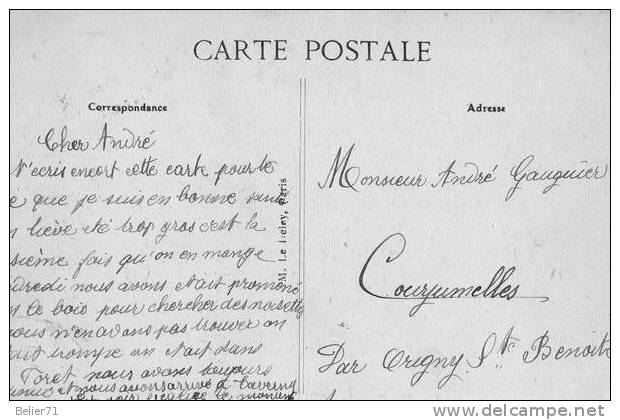 CARTE POSTALE
Correspondance
Cher André
N'écris encort cette carte pour te
que je suis en bonne santé
lièvre été trop gros c'est la
sième fois qu'on en mange
dredi nous avons était promené
le bois pour chercher des noisettes
nous n'en avons pas trouver on
trompe on était dans
Foret nous avons toujours
nous avons arrivé à Taverny
M. Le Deley, Paris
Adresse
Monsieur André Gauguier
Courjumelles
Par Origny Ste Benoite
Belier71
delcampe.net